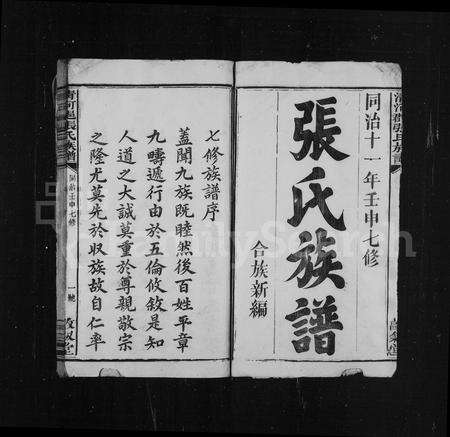 同治十一年壬申七修
張氏族譜
合族新編
七修族譜序
蓋聞九族既睦然後百姓平章
九疇遞行由於五倫攸敘是知
人道之大誠莫重於尊親敬宗
之隆尤莫先於収族故自仁率
清河郡張氏族譜
同治壬申七修
一號
FamilySearch